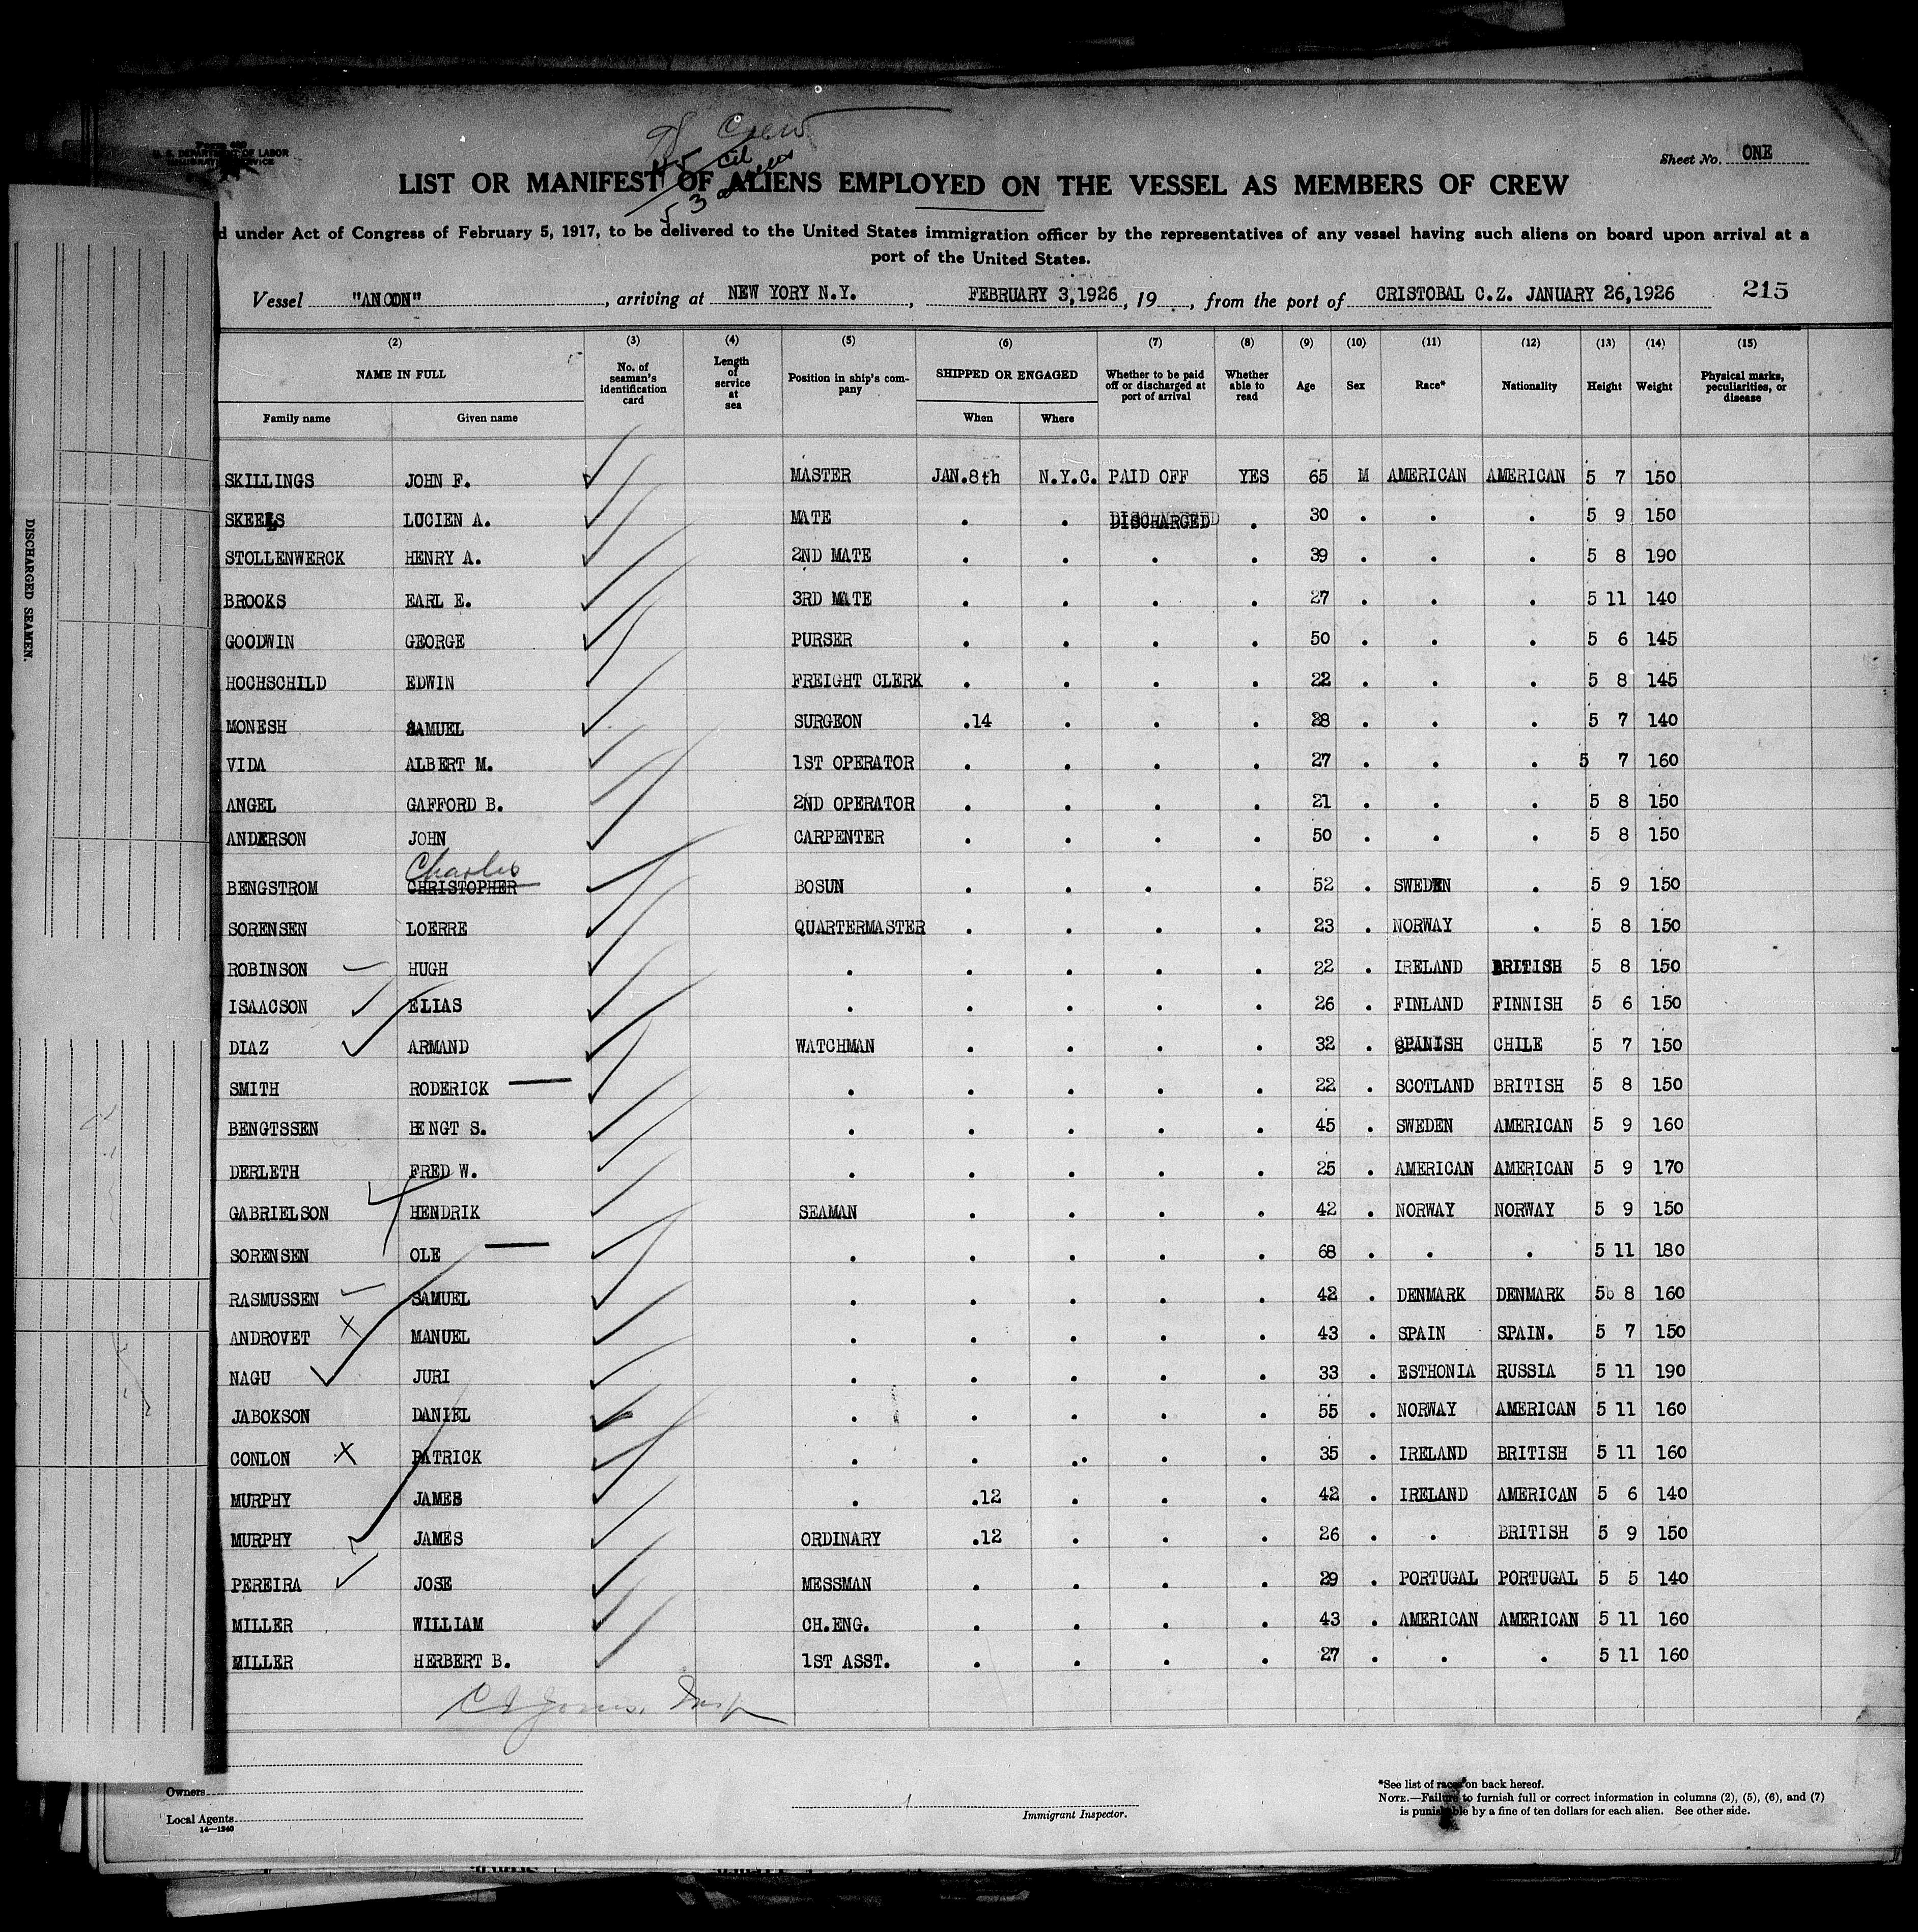 Form 689
U. S. DEPARTMENT OF LABOR
IMMIGRATION SERVICE
98 Crew
45 Cit
53 aliens
Sheet No. ONE
LIST OR MANIFEST OF ALIENS EMPLOYED ON THE VESSEL AS MEMBERS OF CREW
d under Act of Congress of February 5, 1917, to be delivered to the United States immigration officer by the representatives of any vessel having such aliens on board upon arrival at a
port of the United States.
Vessel "ANCON" , arriving at NEW YORK N.Y. , FEBRUARY 3,1926 , 19 , from the port of CRISTOBAL C.Z. JANUARY 26,1926 215
(2) (3) (4) (5) (6) (7) (8) (9) (10) (11) (12) (13) (14) (15)
NAME IN FULL No. of seaman's identification card Length of service at sea Position in ship's company SHIPPED OR ENGAGED Whether to be paid off or discharged at port of arrival Whether able to read Age Sex Race* Nationality Height Weight Physical marks, peculiarities, or disease
Family name Given name When Where
SKILLINGS JOHN F. MASTER JAN.8th N.Y.C. PAID OFF YES 65 M AMERICAN AMERICAN 5 7 150
SKEELS LUCIEN A. MATE . . DISCHARGED . 30 . . . 5 9 150
STOLLENWERCK HENRY A. 2ND MATE . . . . 39 . . . 5 8 190
BROOKS EARL E. 3RD MATE . . . . 27 . . . 5 11 140
GOODWIN GEORGE PURSER . . . . 50 . . . 5 6 145
HOCHSCHILD EDWIN FREIGHT CLERK . . . . 22 . . . 5 8 145
MONESH SAMUEL SURGEON .14 . . . 28 . . . 5 7 140
VIDA ALBERT M. 1ST OPERATOR . . . . 27 . . . 5 7 160
ANGEL GAFFORD B. 2ND OPERATOR . . . . 21 . . . 5 8 150
ANDERSON JOHN CARPENTER . . . . 50 . . . 5 8 150
Charles
BENGSTROM CHRISTOPHER BOSUN . . . . 52 . SWEDEN . 5 9 150
SORENSEN LOERRE QUARTERMASTER . . . . 23 . NORWAY . 5 8 150
ROBINSON HUGH . . . . . 22 . IRELAND BRITISH 5 8 150
ISAACSON ELIAS . . . . . 26 . FINLAND FINNISH 5 6 150
DIAZ ARMAND WATCHMAN . . . . 32 . SPANISH CHILE 5 7 150
SMITH RODERICK . . . . . 22 . SCOTLAND BRITISH 5 8 150
BENGTSSEN BENGT S. . . . . . 45 . SWEDEN AMERICAN 5 9 160
DERLETH FRED W. . . . . . 25 . AMERICAN AMERICAN 5 9 170
GABRIELSON HENDRIK SEAMAN . . . . 42 . NORWAY NORWAY 5 9 150
SORENSEN OLE . . . . . 68 . . . 5 11 180
RASMUSSEN SAMUEL . . . . . 42 . DENMARK DENMARK 5 8 160
ANDROVET X MANUEL . . . . . 43 . SPAIN SPAIN. 5 7 150
NAGU JURI . . . . . 33 . ESTHONIA RUSSIA 5 11 190
JABOKSON DANIEL . . . . . 55 . NORWAY AMERICAN 5 11 160
CONLON X PATRICK . . . . . 35 . IRELAND BRITISH 5 11 160
MURPHY JAMES . .12 . . . 42 . IRELAND AMERICAN 5 6 140
MURPHY JAMES ORDINARY .12 . . . 26 . . BRITISH 5 9 150
PEREIRA JOSE MESSMAN . . . . 29 . PORTUGAL PORTUGAL 5 5 140
MILLER WILLIAM CH.ENG. . . . . 43 . AMERICAN AMERICAN 5 11 160
MILLER HERBERT B. 1ST ASST. . . . . 27 . . . 5 11 160
Jones, Insp
DISCHARGED SEAMEN.
Owners
Local Agents
14—1240
Immigrant Inspector.
*See list of races on back hereof.
NOTE.—Failure to furnish full or correct information in columns (2), (5), (6), and (7)
is punishable by a fine of ten dollars for each alien. See other side.